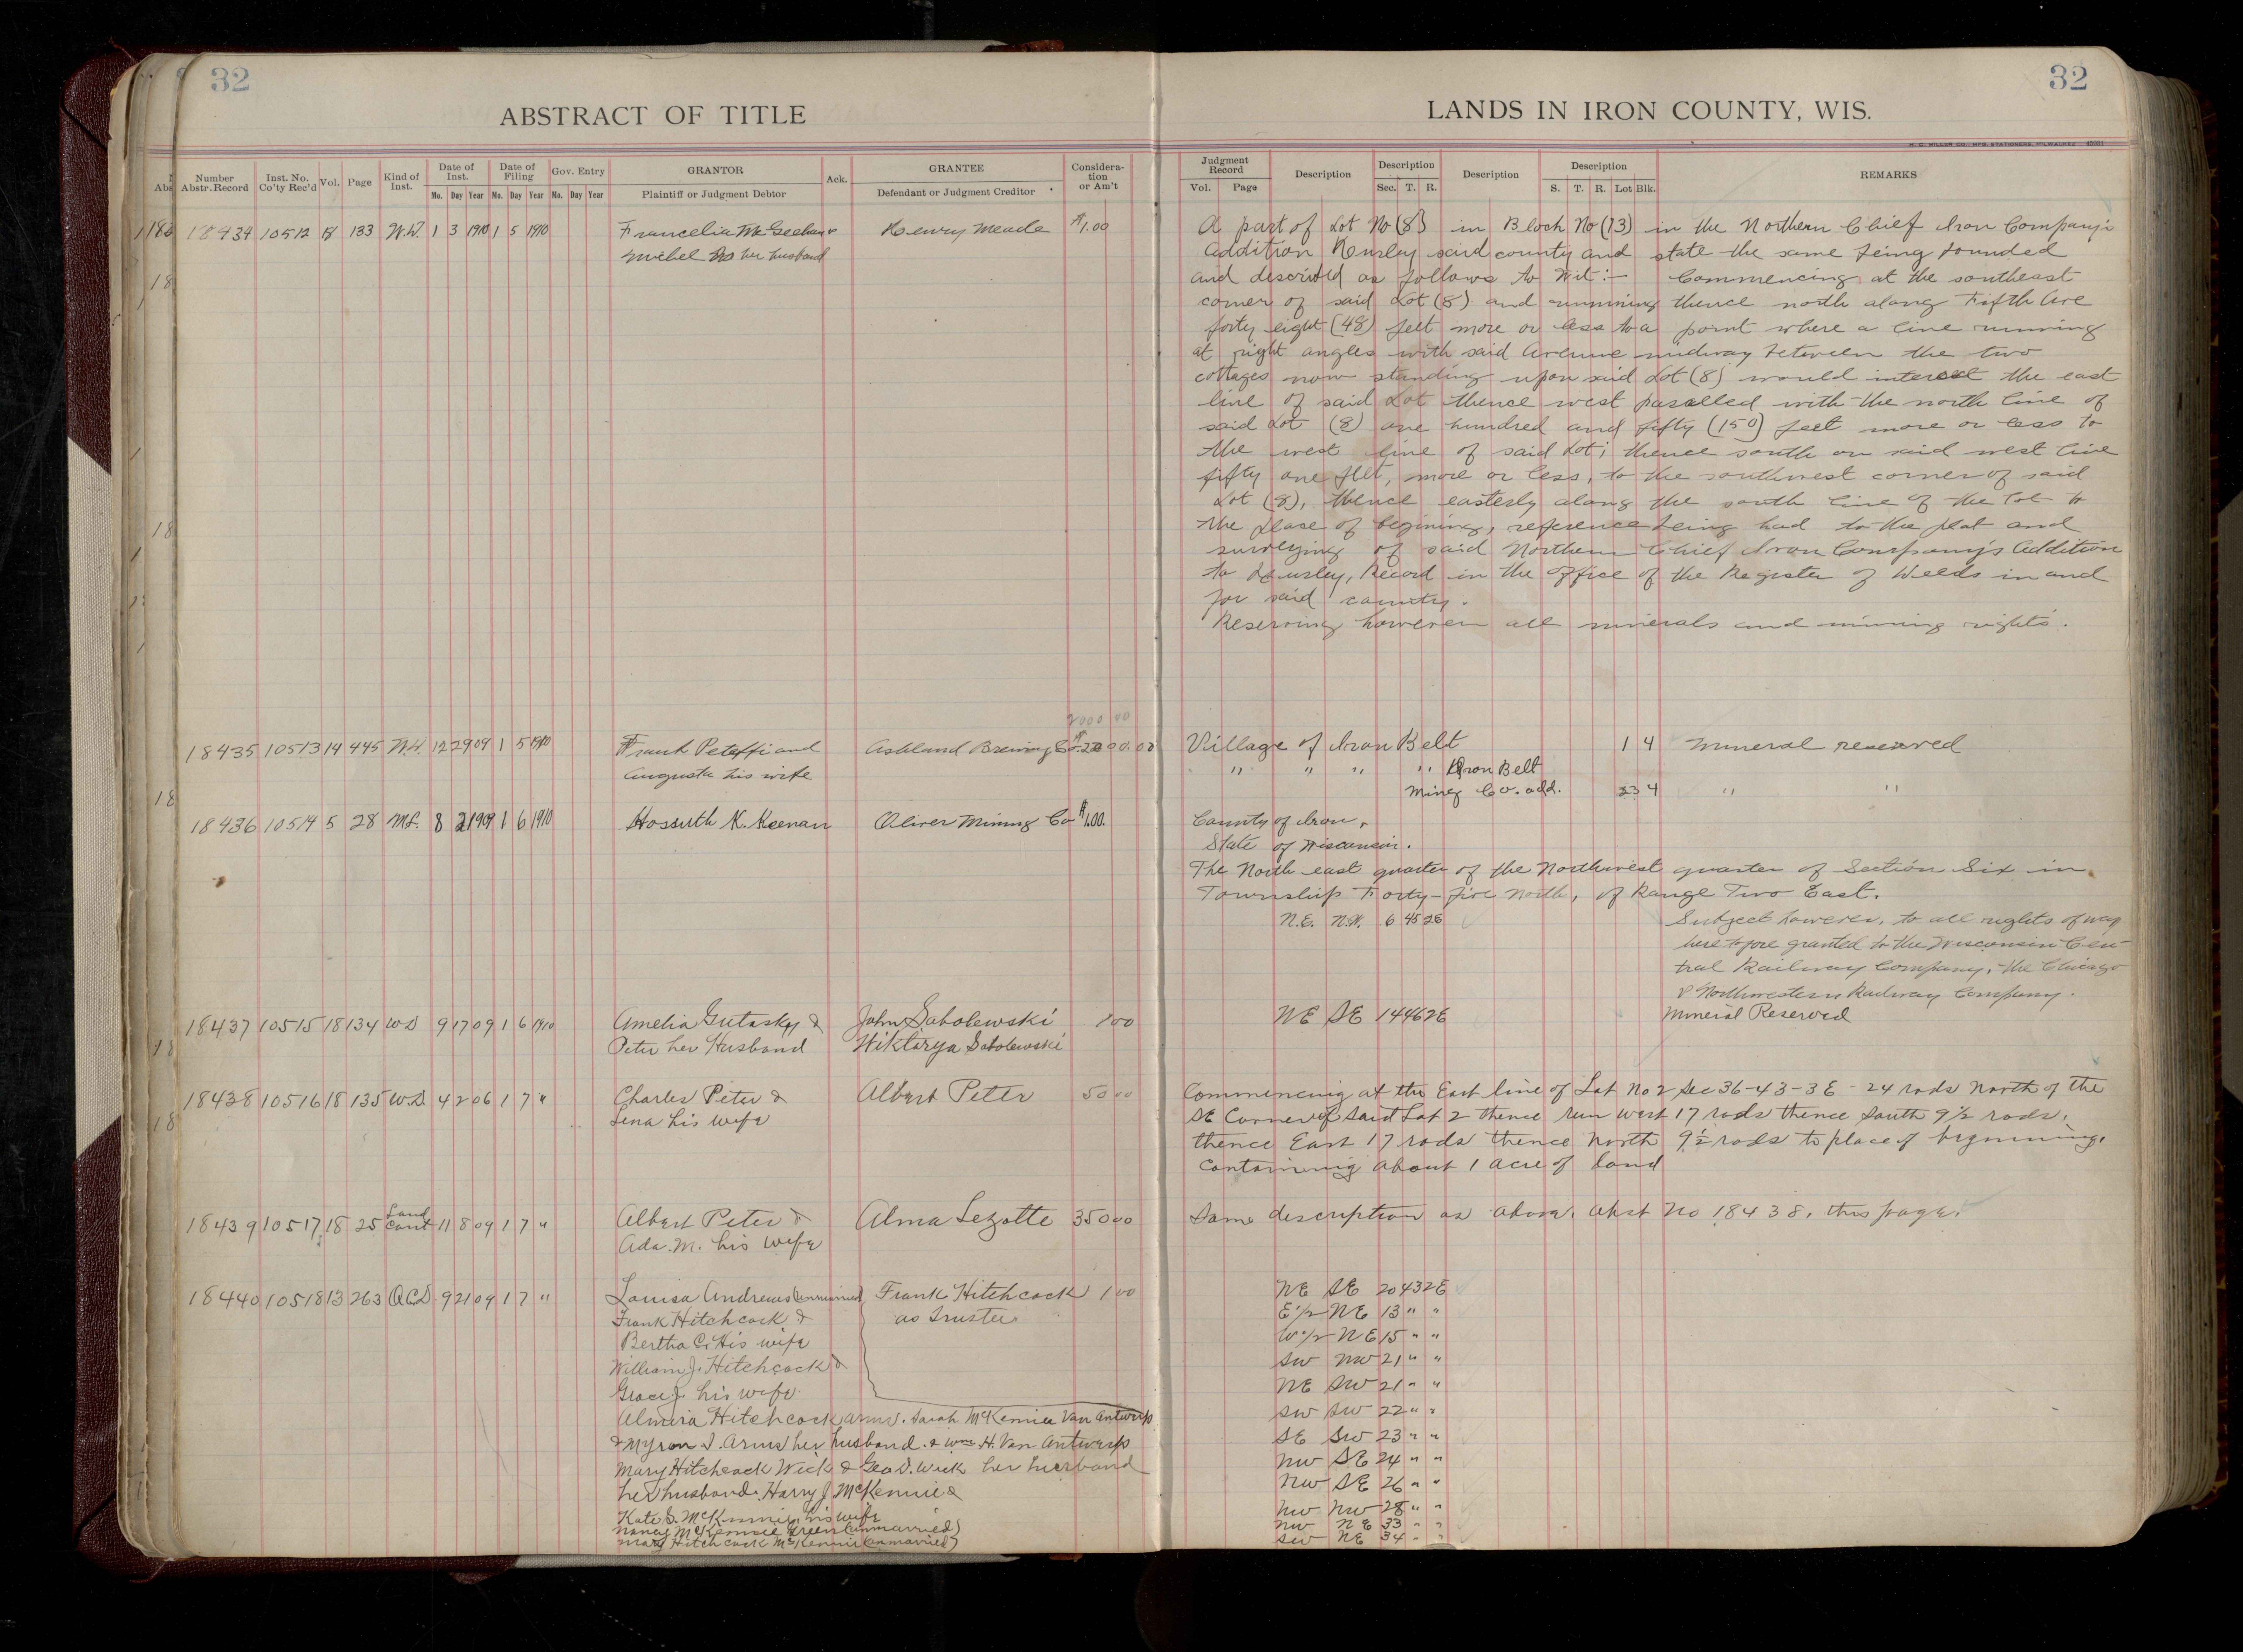 32
ABSTRACT OF TITLE
Number Abstr. Record
Inst. No. Co'ty Rec'd
Vol.
Page
Kind of Inst.
Date of Inst.
Mo. Day Year
Date of Filing
Mo. Day Year
Gov. Entry
Mo. Day Year
GRANTOR
Plaintiff or Judgment Debtor
Ack.
GRANTEE
Defendant or Judgment Creditor
Considera-tion or Am't
18434 10512 18 133 W.D. 1 3 1910 1 5 1910 Francelia McGeehan & Henry Meade $1.00
Michel her husband
2000 00
18435 10513 14 445 W.D. 12 29 09 1 5 1910 Frank Peteffi and Ashland Brewing Co $2000.00
Augusta his wife
18436 10514 5 28 ML. 8 2 1909 1 6 1910 Hossuth K. Keenan Oliver Mining Co $1.00.
18437 10515 18 134 WD 9 17 09 1 6 1910 Amelia Gutasky & John Sabolewski 1 00
Peter her Husband Wiktorya Sabolewski
18438 10516 18 135 W.D 4 2 06 1 7 " Charles Peter & Albert Peter 50 00
Lena his wife
18439 10517 18 25 Land Cont 11 8 09 1 7 " Albert Peter & Alma Lezotte 350 00
Ada. M. his wife
18440 10518 13 263 Q.C.D. 9 21 09 1 7 " Louisa Andrews (unmarried) Frank Hitchcock 1 00
Frank Hitchcock & as Trustee
Bertha C. His wife
William J. Hitchcock &
Grace J. his wife
Almira Hitchcock Arms. Sarah McKennie Van Antwerp
& Myron I. Arms her husband. & Wm H. Van Antwerp
Mary Hitchcock Wick & Geo D. Wick her husband
her husband. Harry J McKennie &
Kate S. McKennie his wife
Nancy McKennie Green (unmarried)
Mary Hitchcock McKennie (unmarried)
32
LANDS IN IRON COUNTY, WIS.
H. C. MILLER CO., MFG. STATIONERS, MILWAUKEE
Judgment Record
Vol. Page
Description
Description
Sec. T. R.
Description
Description
S. T. R. Lot Blk.
REMARKS
A part of Lot No (8) in Block No (13) in the Northern Chief Iron Company's
Addition Hurley said county and state the same being bounded
and described as follows to wit:— Commencing at the southeast
corner of said Lot (8) and running thence north along Fifth Ave
forty eight (48) feet more or less to a point where a line running
at right angles with said Avenue midway between the two
cottages now standing upon said Lot (8) would intersect the east
line of said Lot thence west paralled with the north line of
said Lot (8) one hundred and fifty (150) feet more or less to
the west line of said Lot; thence south on said west line
fifty one feet, more or less, to the southwest corner of said
Lot (8), thence easterly along the south line of the lot to
the place of begining, reference being had to the plat and
surveying of said Northern Chief Iron Company's Addition
to Hurley, Record in the office of the Register of Deeds in and
for said county.
Reserving however all minerals and mining rights.
Village of Iron Belt 1 4 Mineral reserved
" " " " Iron Belt
Ming Co. add. 23 4 " "
County of Iron,
State of Wisconsin.
The North east quarter of the Northwest quarter of Section Six in
Township Forty-five North, of Range Two East.
N.E. N.W. 6 45 2E Subject however, to all rights of way
heretofore granted to the Wisconsin Cen-
tral Railway Company, the Chicago
& Northwestern Railway Company.
NE SE 14 46 2E Mineral Reserved
Commencing at the East line of Lot No 2 Sec 36-43-3E - 24 rods North of the
SE Corner of said Lot 2 thence run west 17 rods thence South 9 1/2 rods,
thence East 17 rods thence North 9 1/2 rods to place of beginning.
Containing about 1 acre of land
Same description as above. Abst No 18438, this page.
NE SE 20 43 2E
E 1/2 NE 13 " "
W 1/2 NE 15 " "
SW NW 21 " "
NE SW 21 " "
SW SW 22 " "
SE SW 23 " "
NW SE 24 " "
NW SE 26 " "
NW NW 28 " "
NW NE 33 " "
SW NE 34 " "